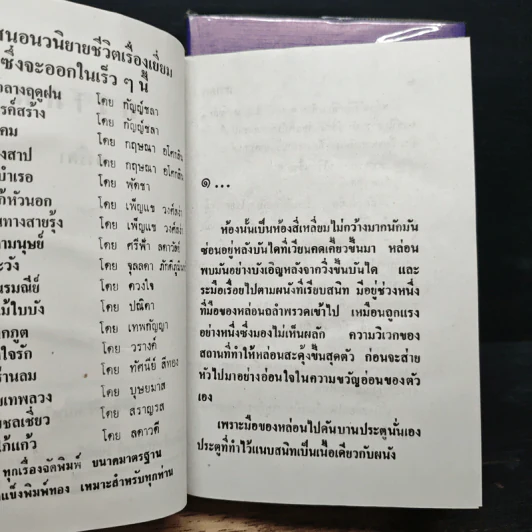 สนอนวนิยายชีวิตเรื่องเยี่ยม
ซึ่งจะออกในเร็ว ๆ นี้
กลางฤดูฝน โดย กัญญ์ชลา
รค์สร้าง โดย กัญญ์ชลา
คม โดย กฤษณา อโศกสิน
งสาป โดย กฤษณา อโศกสิน
บำเรอ โดย พัดชา
ก้หัวนอก โดย เพ็ญแข วงศ์สง่า
นทางสายรุ้ง โดย เพ็ญแข วงศ์สง่า
ามนุษย์ โดย ศรีฟ้า ลดาวัลย์
ะวัง โดย จุลลดา ภักดีภูมินทร์
นรมณีย์ โดย ดวงใจ
ม้ใบบัง โดย ปณิตา
กภูต โดย เทพกัญญา
ใจรัก โดย วรางค์
ร่านลม โดย ทัศนีย์ สีทอง
ยเทพลวง โดย บุษยมาส
ยชลเชี่ยว โดย สราญรส
ก้แก้ว โดย ลดาวดี
ทุกเรื่องจัดพิมพ์ ขนาดมาตรฐาน
แข็งพิมพ์ทอง เหมาะสำหรับทุกท่าน
๑...
ห้องนั้นเป็นห้องสี่เหลี่ยมไม่กว้างมากนักมัน
ซ่อนอยู่หลังบันไดที่เวียนคดเคี้ยวขึ้นมา หล่อน
พบมันอย่างบังเอิญหลังจากวิ่งขึ้นบันได และ
ระมือเรื่อยไปตามผนังที่เรียบสนิท มีอยู่ช่วงหนึ่ง
ที่มือของหล่อนถลำพรวดเข้าไป เหมือนถูกแรง
อย่างหนึ่งซึ่งมองไม่เห็นผลัก ความวิเวกของ
สถานที่ทำให้หล่อนสะดุ้งขึ้นสุดตัว ก่อนจะส่าย
หัวไปมาอย่างอ่อนใจในความขวัญอ่อนของตัว
เอง
เพราะมือของหล่อนไปดันบานประตูนั่นเอง
ประตูที่ทำไว้แนบสนิทเป็นเนื้อเดียวกับผนัง